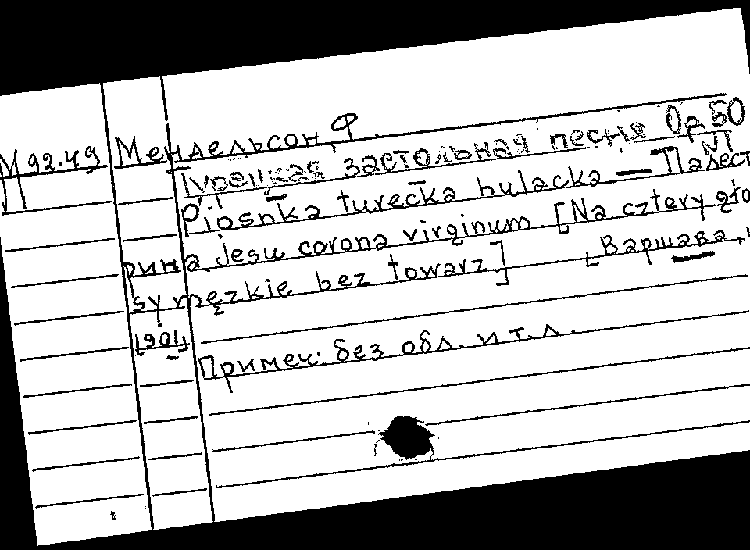 М 92.49 Мендельсон, Ф.
П Турецкая застольная песня Op 50 №1
Piosnka turecka hulacka — Палест
рина Jesu corona virginum [Na cztery gło
sy męzkie bez towarz.] [Варшава,
1901]
Примеч: без обл. и т.л.